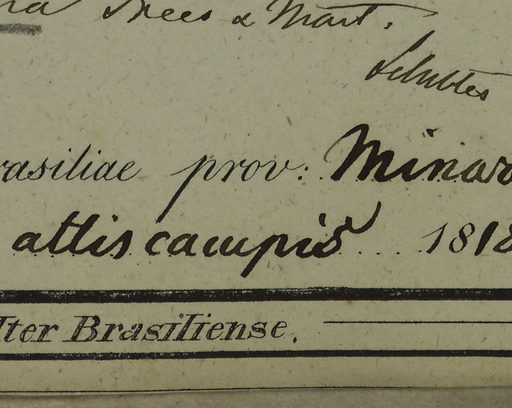 Nees & Mart.
rasiliae prov: Minar
altis campis 1818
Iter Brasiliense.